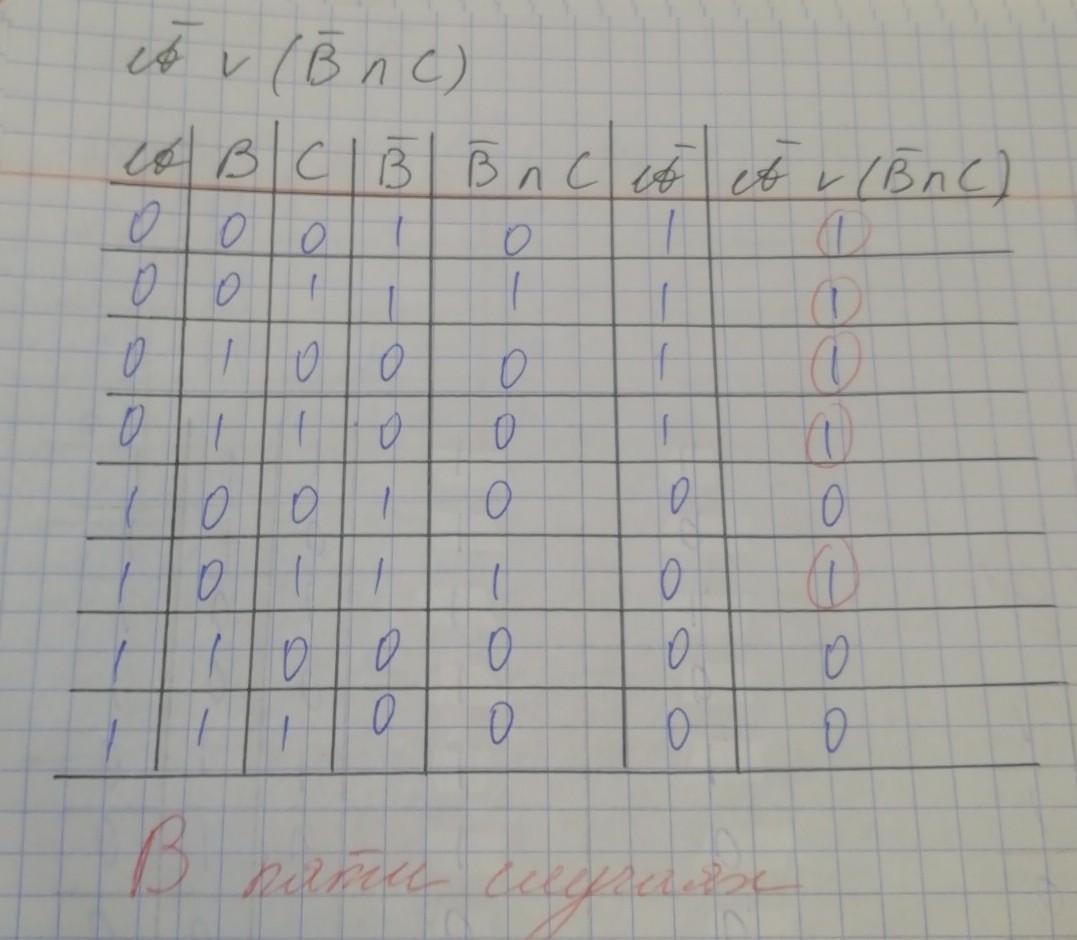 Ā v (B̄ ∩ C)
A B C B̄ B̄ ∩ C Ā Ā v (B̄ ∩ C)
0 0 0 1 0 1 1
0 0 1 1 1 1 1
0 1 0 0 0 1 1
0 1 1 0 0 1 1
1 0 0 1 0 0 0
1 0 1 1 1 0 1
1 1 0 0 0 0 0
1 1 1 0 0 0 0
В пяти случаях